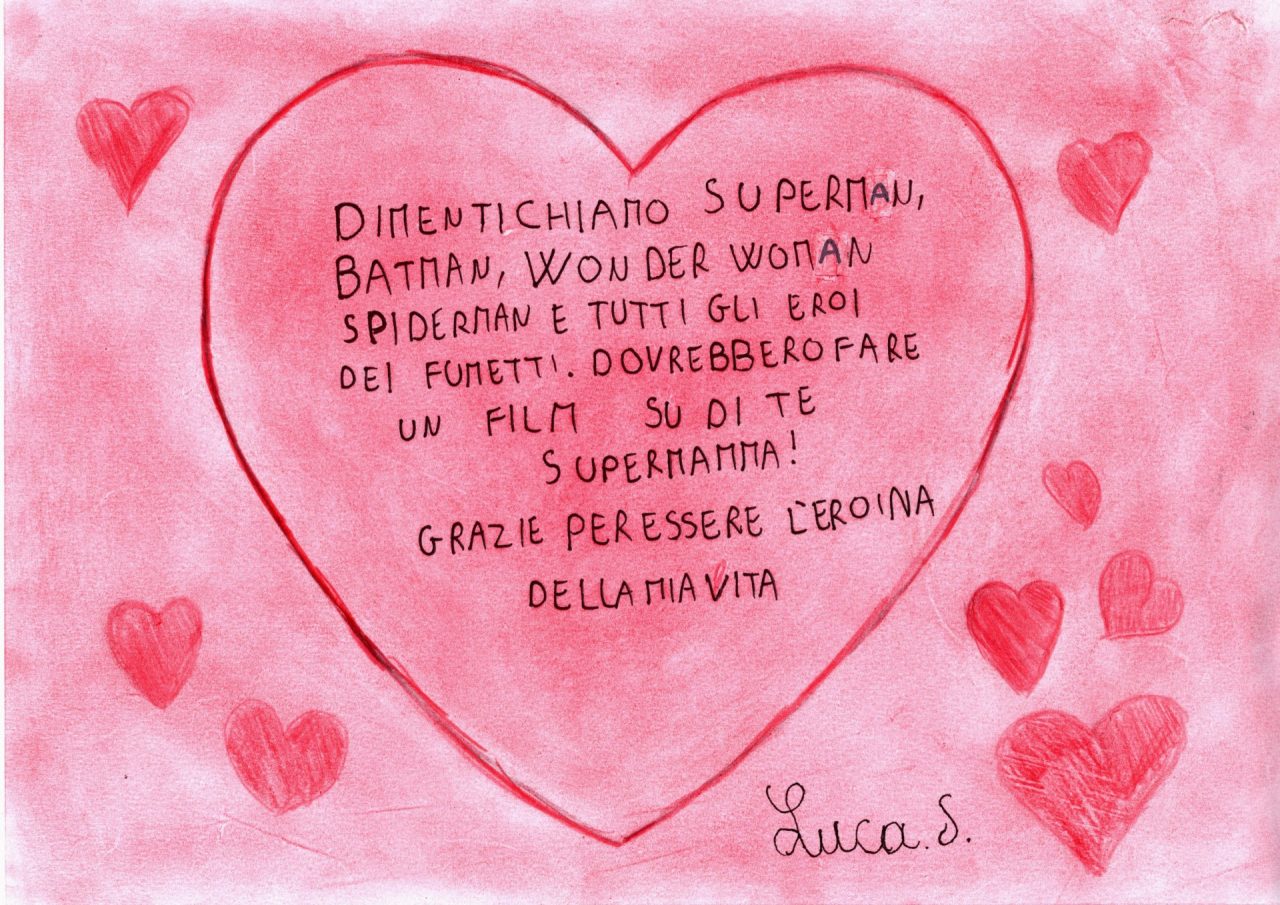 DIMENTICHIAMO SUPERMAN,
BATMAN, WONDER WOMAN
SPIDERMAN E TUTTI GLI EROI
DEI FUMETTI. DOVREBBERO FARE
UN FILM SU DI TE
SUPERMAMMA!
GRAZIE PER ESSERE L'EROINA
DELLA MIA VITA
Luca. S.